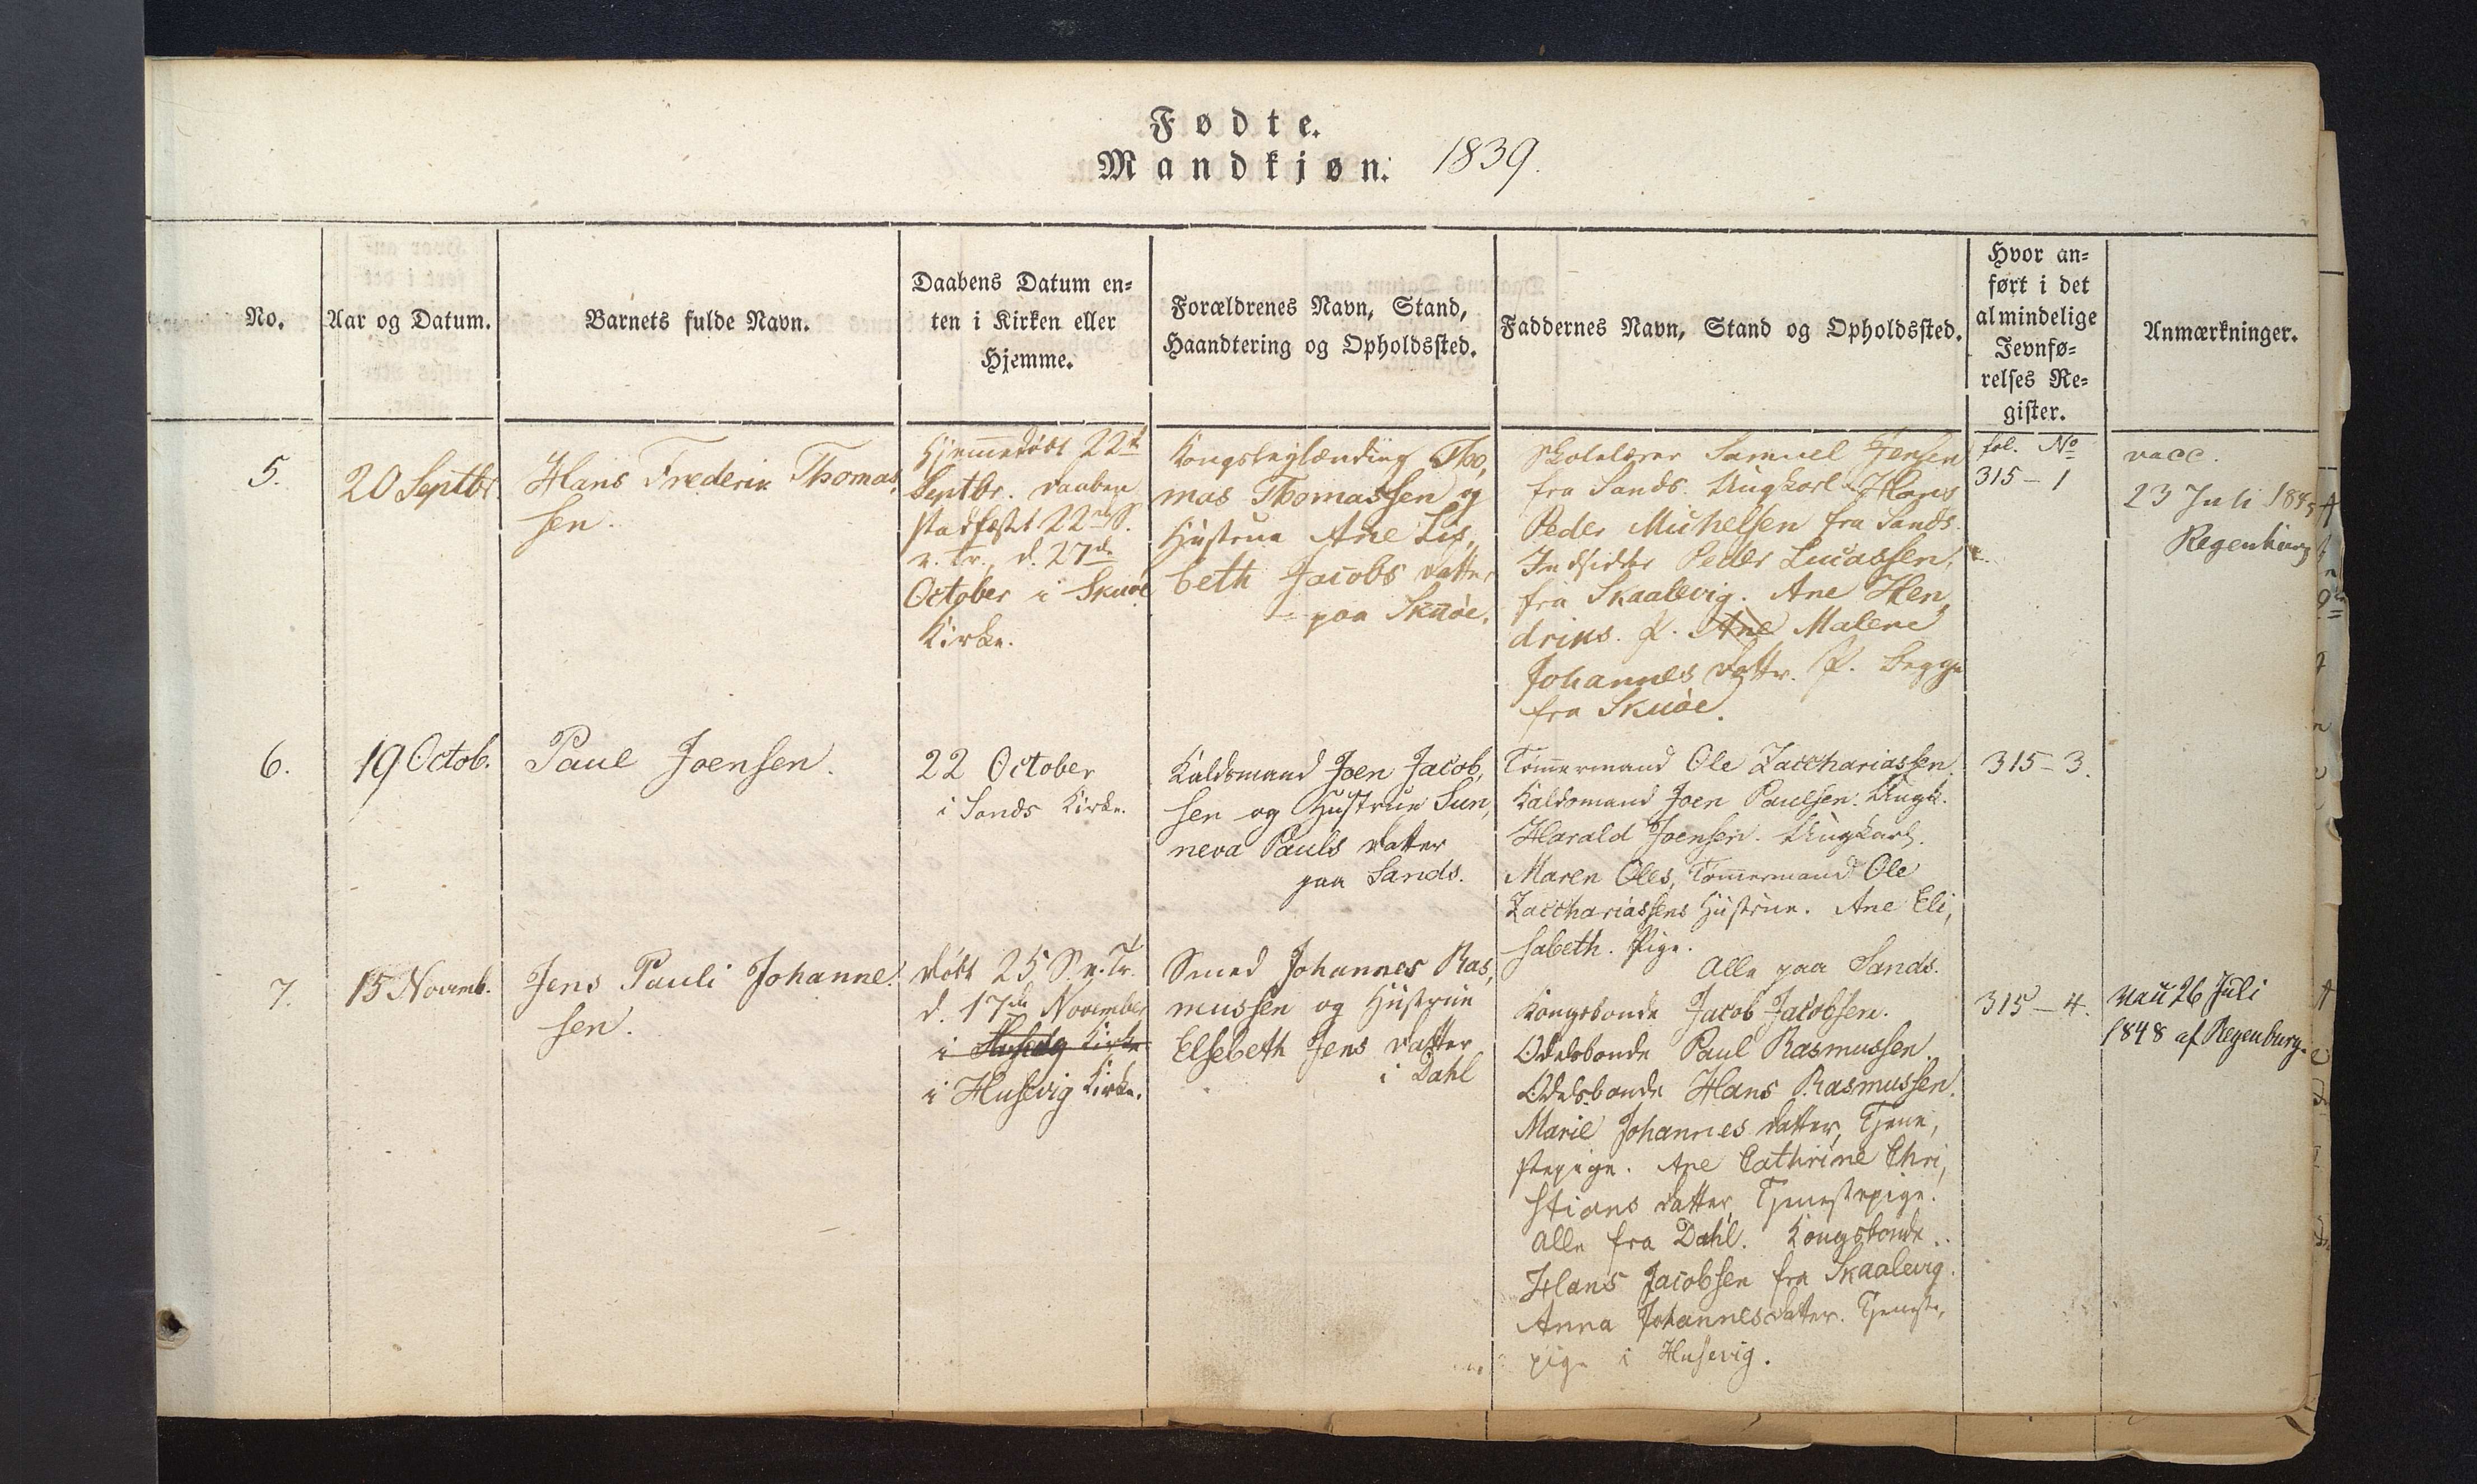 Fødte.
Mandkjøn. 1839.
No.
Aar og Datum.
Barnets fulde Navn.
Daabens Datum en-
ten i Kirken eller
Hjemme.
Forældrenes Navn, Stand,
Haandtering og Opholdssted.
Faddernes Navn, Stand og Opholdssted.
Hvor an-
ført i det
almindelige
Jevnfø-
relses Re-
gister.
Anmærkninger.
5.
20 Septbr
Hans Frederik Thomas,
sen.
Hjemmedøbt 22d
Septbr. Daaben
stadfæstet 22de S.
e. Tr., d. 27de
October i Skuøe
Kirke.
Thomas Thomassen og
Hustrue Ane Lis,
beth Jacobs datter
paa Skuøe.
Skolelærer Samuel Jensen
fra Sands. Ungkarl Hans
Peder Michelsen fra Sands.
Indsidder Peder Lucassen,
fra Skaalevig. Ane Hen,
driks. P. Ane Malene
Johannes dattr. P. begge
fra Skuøe.
fol. No
315 - 1
vacc.
23 Juli
Regenburg
6.
19 Octob.
Paul Joensen.
22 October
i Sands Kirke.
Kaldsmand Joen Jacob,
sen og Hustrue Sun,
neva Pauls datter
paa Sands.
Tømmermand Ole Zacchariassen.
Kaldsmand Joen Paulsen. Ungk.
Harald Joensen. Ungkarl.
Maren Oles, Tømmermand Ole
Zacchariassens Hustrue. Ane Eli,
sabeth. Pige.
Alle paa Sands.
315 - 3.
7.
15 Novemb.
Jens Pauli Johanne,
sen.
døbt 25 S. e. Tr.
d. 17de November
i Husevig Kirke
i Husevig Kirke.
Smed Johannes Ras,
mussen og Hustrue
Elsebeth Jens datter
i Dahl
Kongsbonde Jacob Jacobsen.
Odelsbonde Paul Rasmussen.
Odelsbonde Hans Rasmussen.
Marie Johannes datter, Tjene,
stepige. Ane Cathrine Chri,
stians datter, Tjenestepige.
Alle fra Dahl. Kongsbonde
Hans Jacobsen fra Skaalevig.
Anna Johannesdatter. Tjeneste,
pige i Husevig.
315 - 4.
26 Juli
1848 af Regenburg.